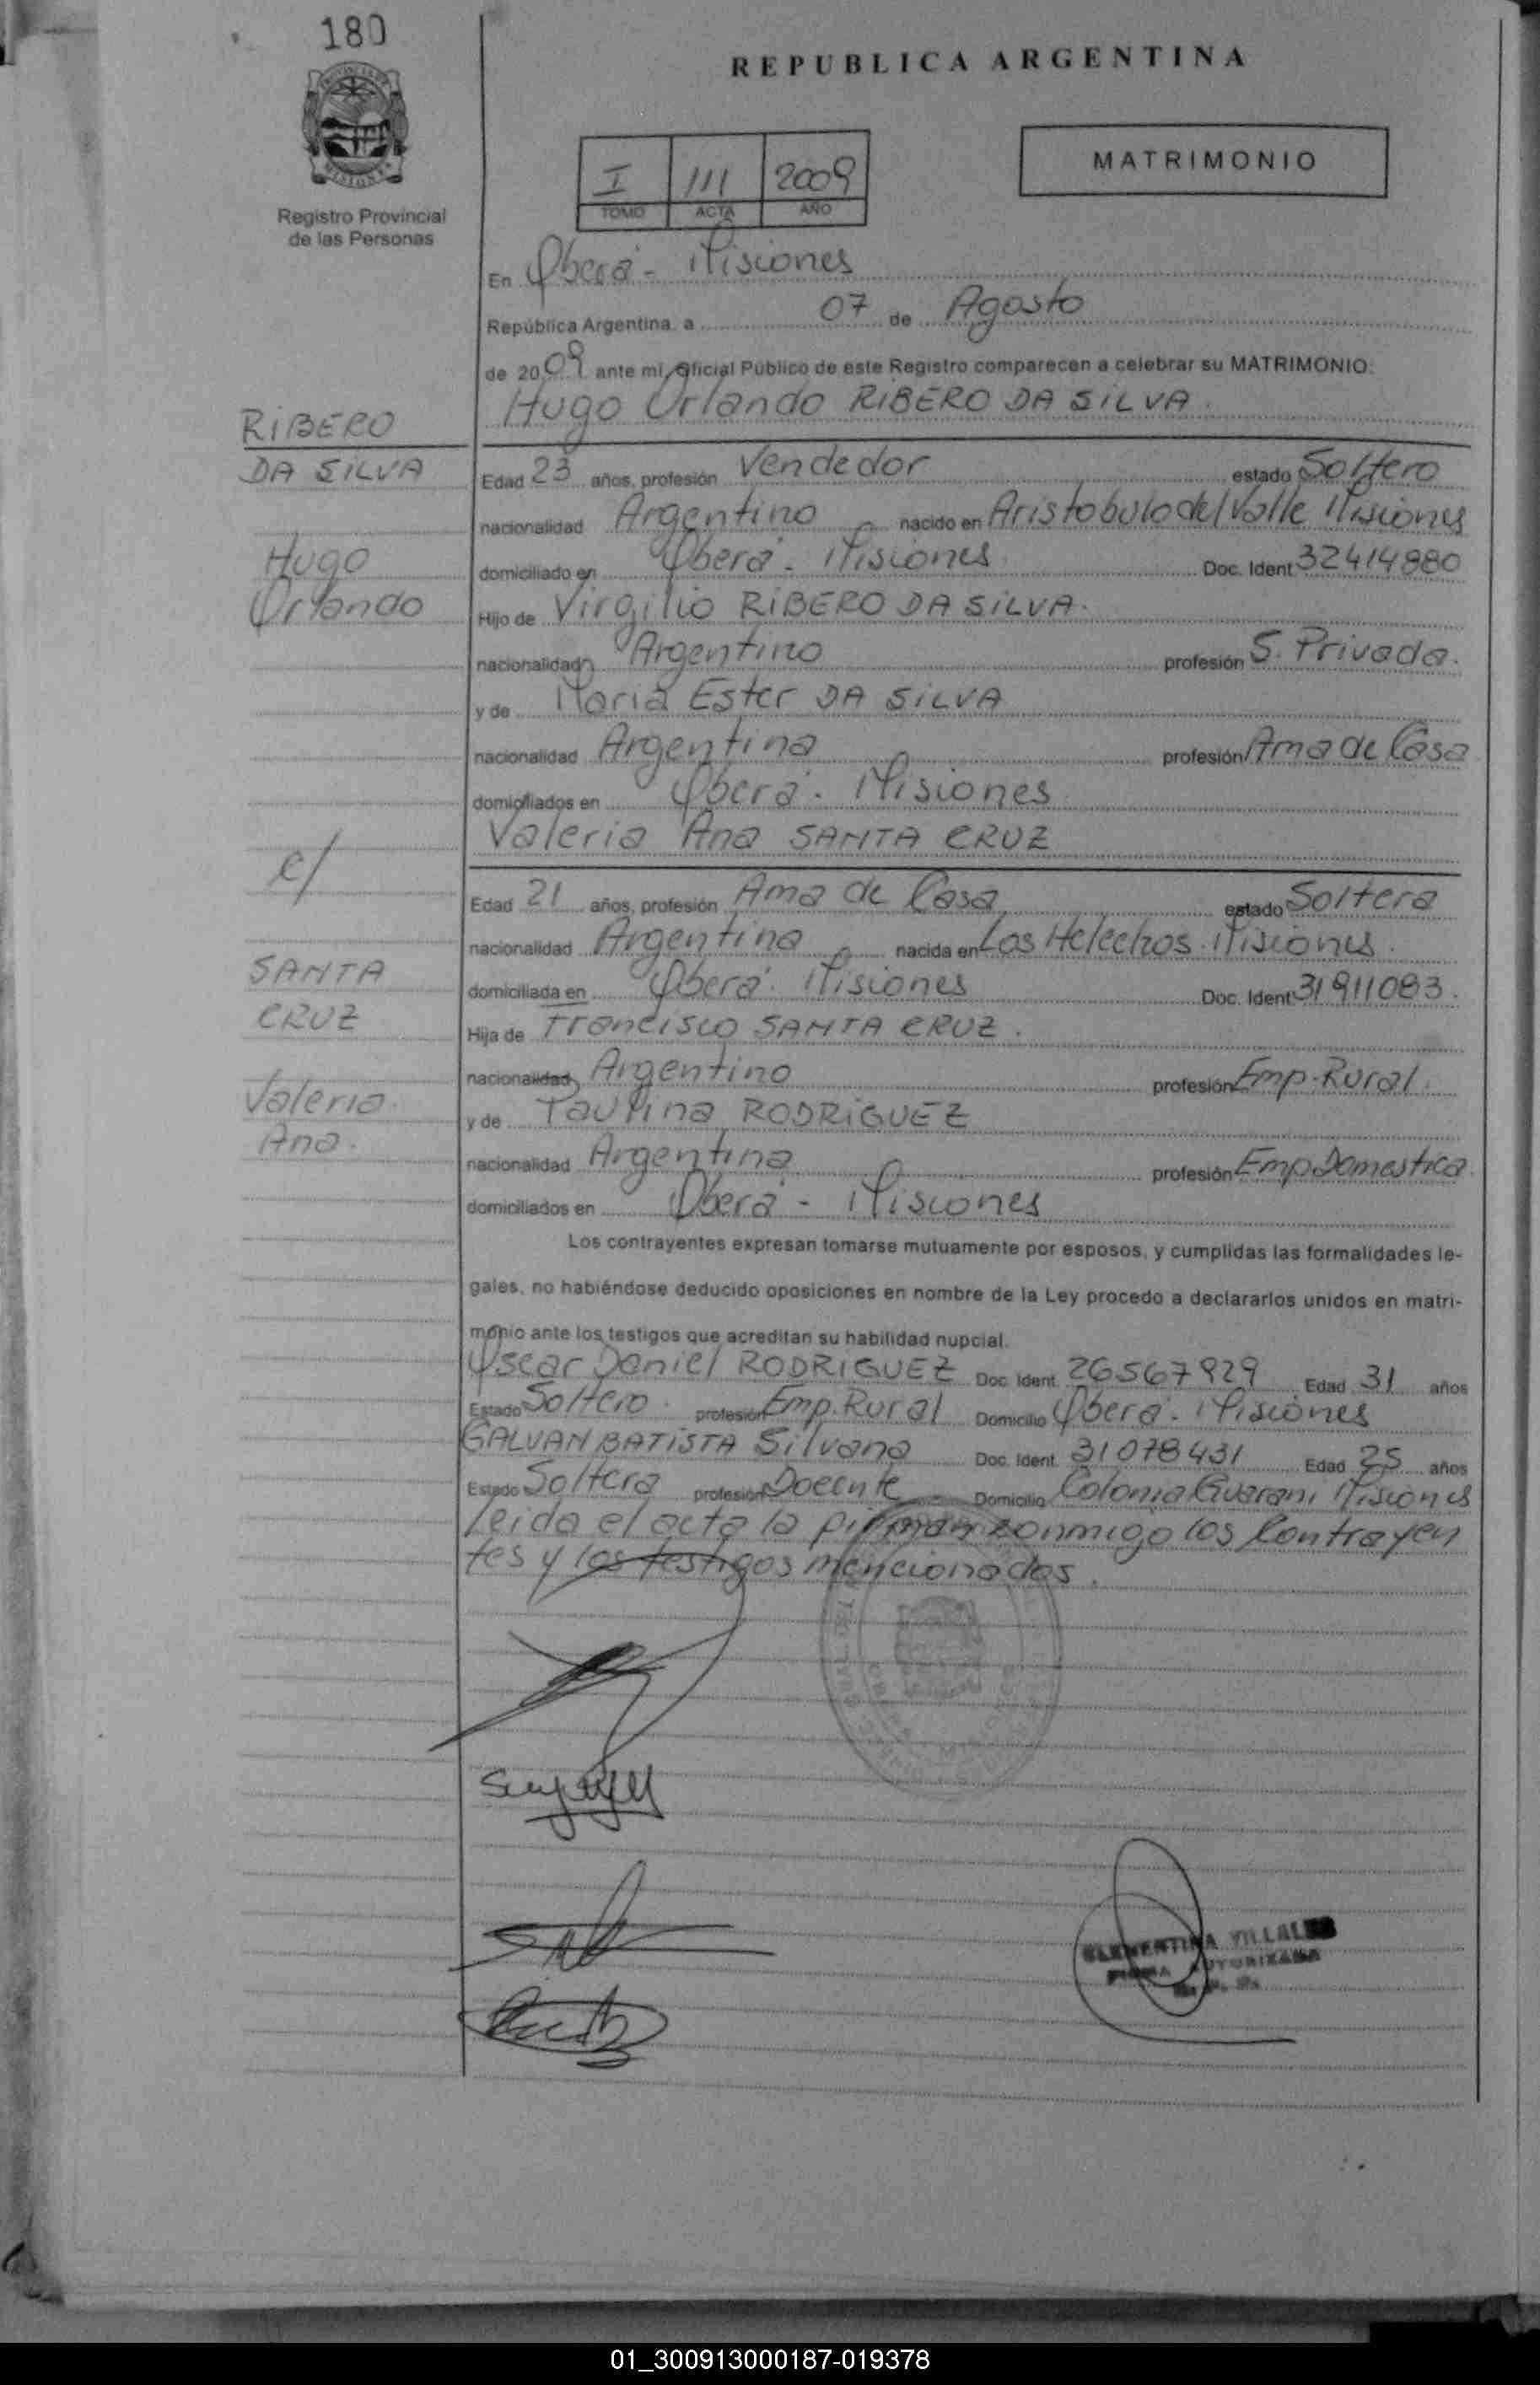 180
REPUBLICA ARGENTINA
MATRIMONIO
I 111 2009
TOMO ACTA AÑO
Registro Provincial
de las Personas
En Oberá - Misiones
República Argentina, a 07 de Agosto
de 2009 ante mi, Oficial Público de este Registro comparecen a celebrar su MATRIMONIO:
Hugo Orlando RIBERO DA SILVA.
RIBERO
DA SILVA
Hugo
Orlando
Edad 23 años, profesión Vendedor estado Soltero
nacionalidad Argentino nacido en Aristobulo del Valle Misiones
domiciliado en Oberá - Misiones Doc. Ident. 32414880
Hijo de Virgilio RIBERO DA SILVA.
nacionalidad Argentino profesión S. Privada.
y de Maria Ester DA SILVA
nacionalidad Argentina profesión Ama de Casa
domiciliados en Oberá - Misiones
Valeria Ana SANTA CRUZ
c/
SANTA
CRUZ
Valeria
Ana.
Edad 21 años, profesión Ama de Casa estado Soltera
nacionalidad Argentina nacida en Los Helechos Misiones.
domiciliada en Oberá. Misiones Doc. Ident. 31911083.
Hija de Francisco SANTA CRUZ.
nacionalidad Argentino profesión Emp. Rural.
y de Paulina RODRIGUEZ
nacionalidad Argentina profesión Emp Domestica
domiciliados en Oberá - Misiones
Los contrayentes expresan tomarse mutuamente por esposos, y cumplidas las formalidades le-
gales, no habiéndose deducido oposiciones en nombre de la Ley procedo a declararlos unidos en matri-
monio ante los testigos que acreditan su habilidad nupcial.
Oscar Daniel RODRIGUEZ Doc. Ident. 26567929 Edad 31 años
Estado Soltero. profesión Emp. Rural Domicilio Oberá - Misiones
GALVAN BATISTA Silvana Doc. Ident. 31078431 Edad 25 años
Estado Soltera profesión Docente Domicilio Colonia Guarani Misiones
leida el acta la firman conmigo los Contrayen
tes y los testigos mencionados.
CLEMENTINA
FIRMA AUTORIZADA
01_300913000187-019378